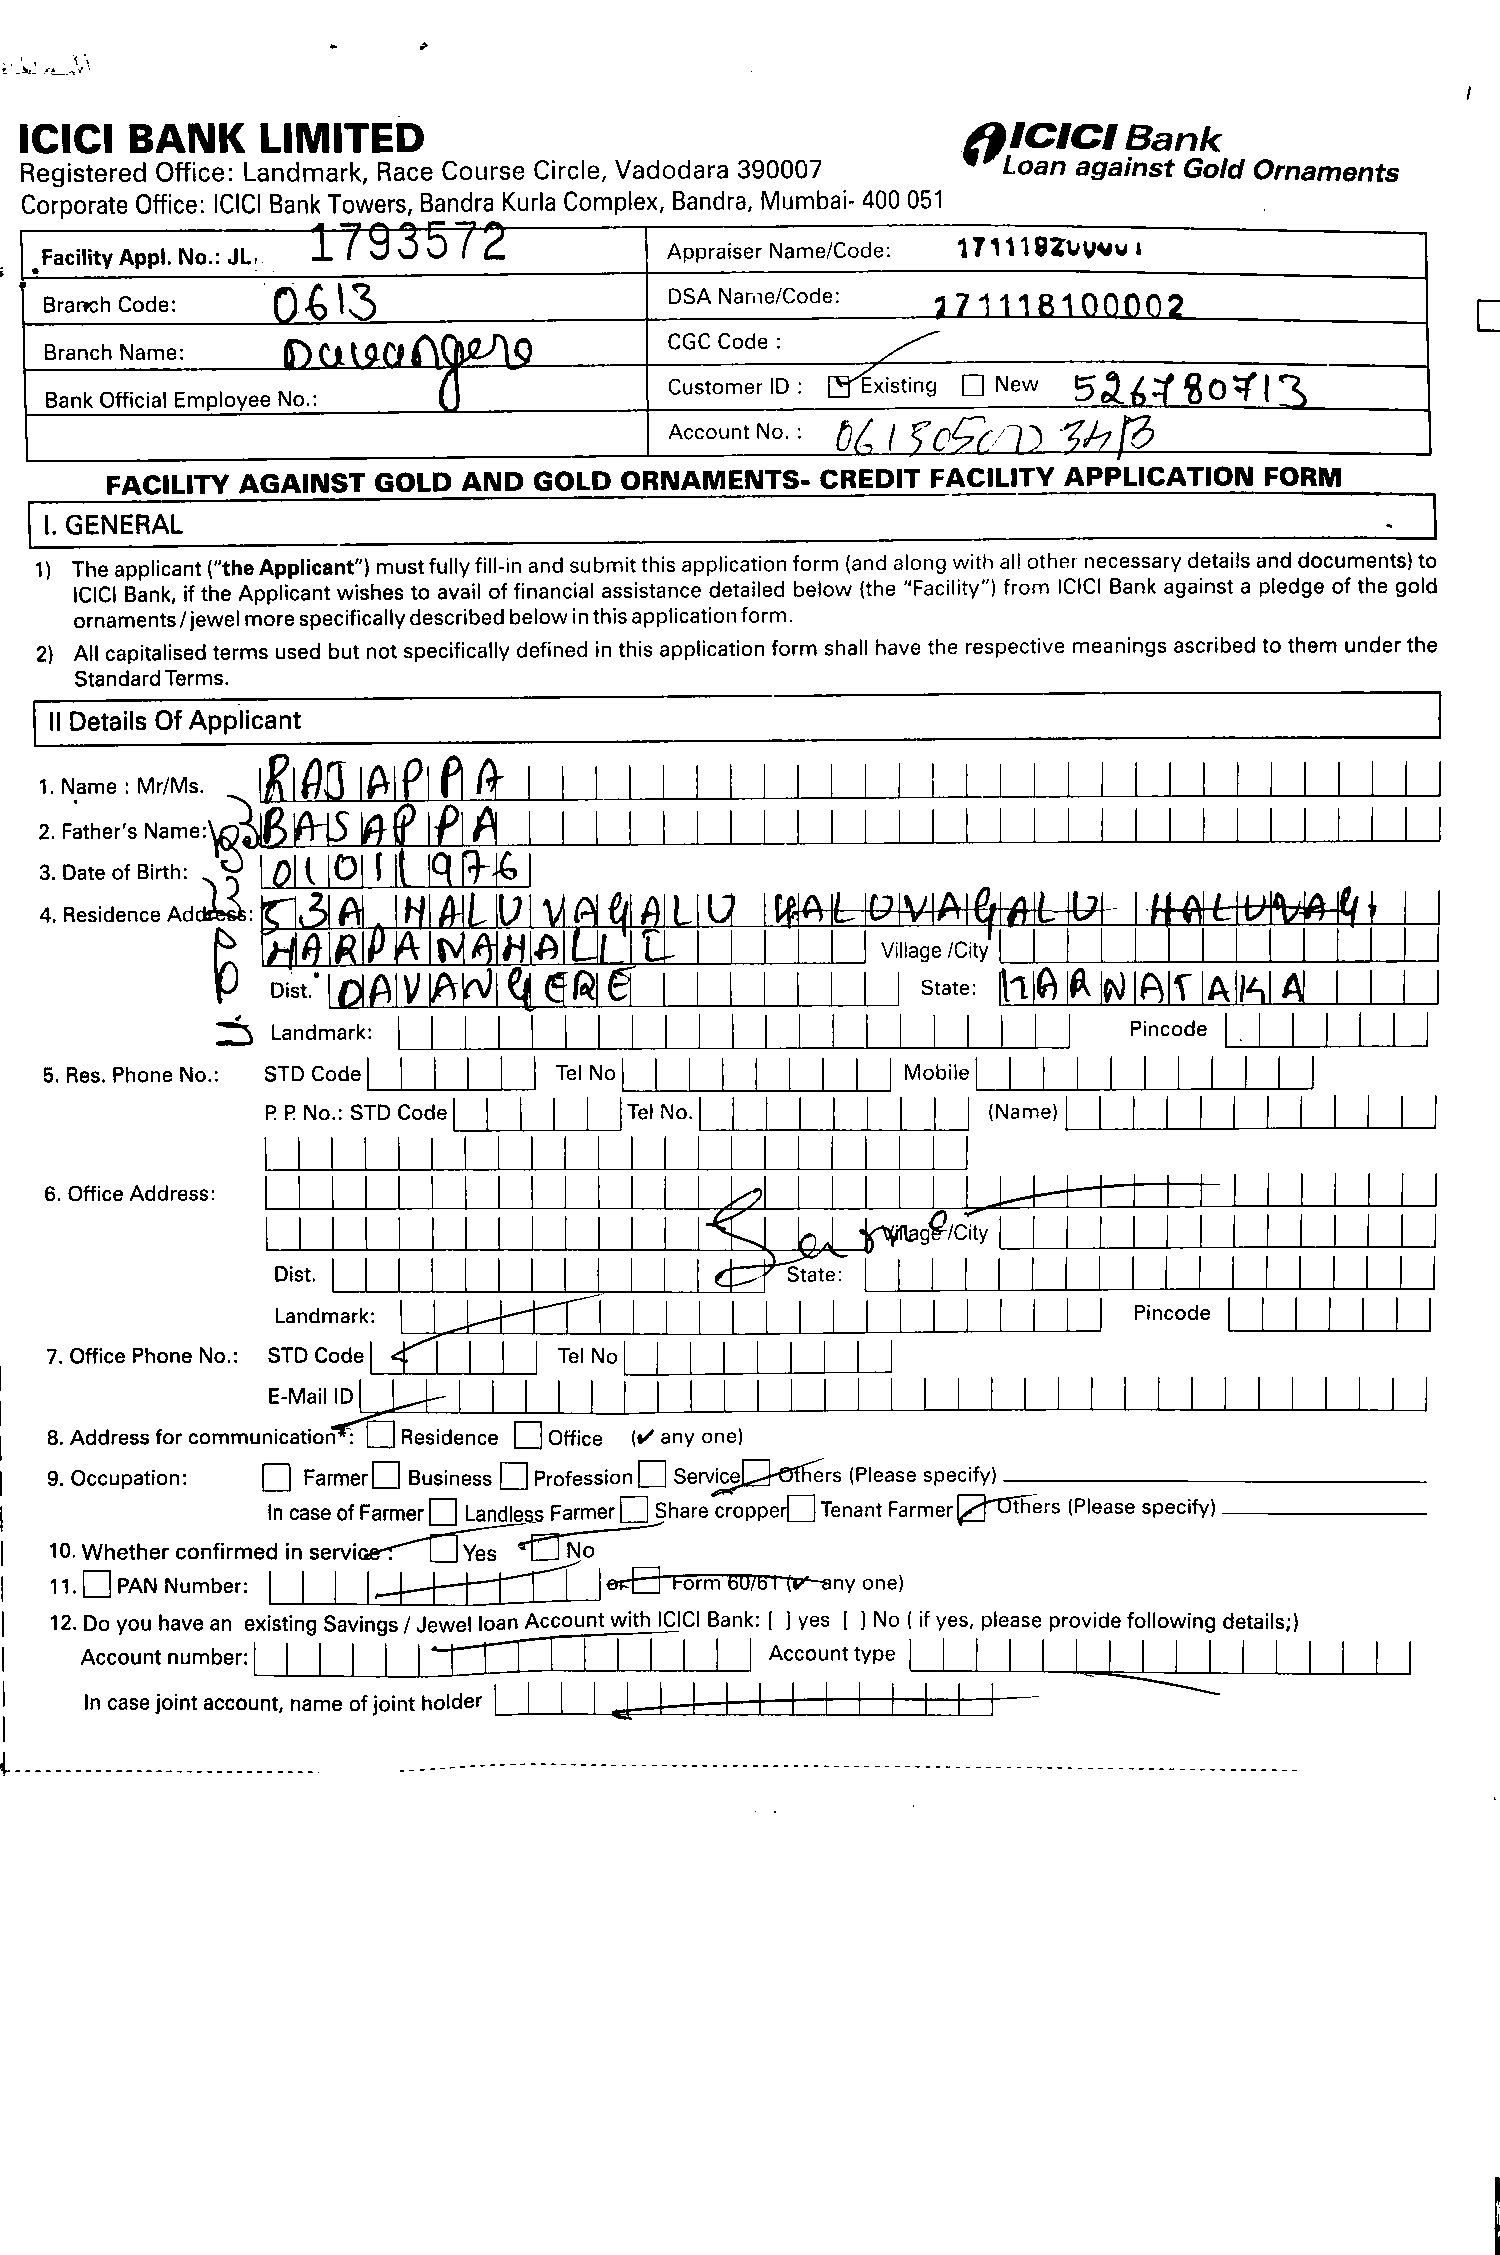 ICICI BANK LIMITED
ICICI Bank
Registered Office: Landmark, Race Course Circle, Vadodara 390007
Loan against Gold Ornaments
Corporate Office: ICICI Bank Towers, Bandra Kurla Complex, Bandra, Mumbai- 400 051
Facility Appl. No.: JL. 1793572
Appraiser Name/Code:
Branch Code: 0613
DSA Name/Code: 171118100002
Branch Name: Davangere
CGC Code :
Bank Official Employee No.:
Customer ID : Existing New 526780713
Account No. :
FACILITY AGAINST GOLD AND GOLD ORNAMENTS- CREDIT FACILITY APPLICATION FORM
I. GENERAL
1) The applicant ("the Applicant") must fully fill-in and submit this application form (and along with all other necessary details and documents) to
ICICI Bank, if the Applicant wishes to avail of financial assistance detailed below (the "Facility") from ICICI Bank against a pledge of the gold
ornaments / jewel more specifically described below in this application form.
2) All capitalised terms used but not specifically defined in this application form shall have the respective meanings ascribed to them under the
Standard Terms.
II Details Of Applicant
1. Name : Mr/Ms. RAJAPPA
2. Father's Name: BASAPPA
3. Date of Birth: 01011976
4. Residence Address: 53A HALUVAGALU HALUVAGALU HALUVAG
HARPANAHALLI Village /City
Dist. DAVANGERE State: KARNATAKA
Landmark: Pincode
5. Res. Phone No.: STD Code Tel No Mobile
P. P. No.: STD Code Tel No. (Name)
6. Office Address:
Same Village /City
Dist. State:
Landmark: Pincode
7. Office Phone No.: STD Code Tel No
E-Mail ID
8. Address for communication : Residence Office (✔ any one)
9. Occupation: Farmer Business Profession Service Others (Please specify)
In case of Farmer Landless Farmer Share cropper Tenant Farmer Others (Please specify)
10. Whether confirmed in service : Yes No
11. PAN Number: or Form 60/61 (✔ any one)
12. Do you have an existing Savings / Jewel loan Account with ICICI Bank: [ ] yes [ ] No ( if yes, please provide following details;)
Account number: Account type
In case joint account, name of joint holder